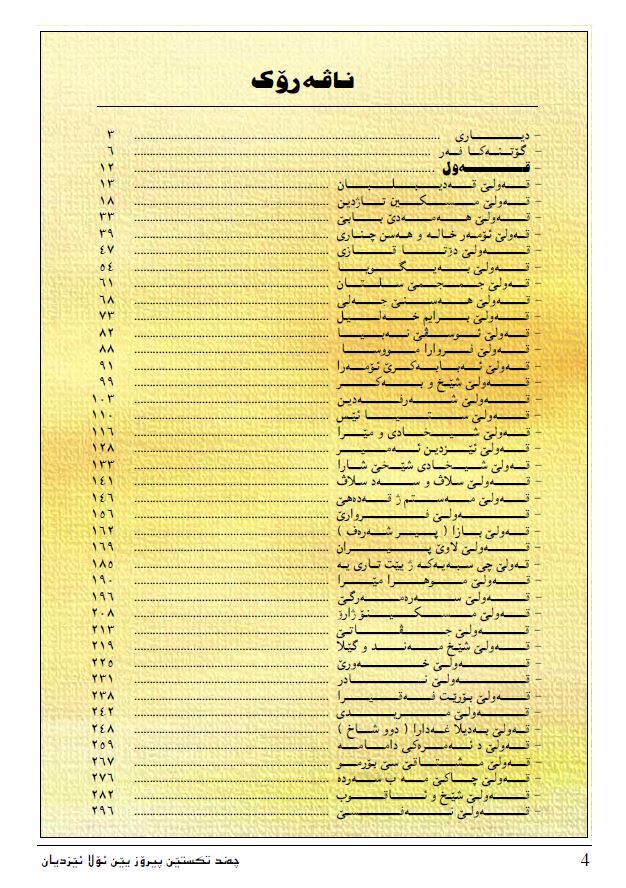 ناڤەرۆک
- دیاری ... ٣
- گۆتنەکا فەر ... ٦
- قەول ... ١٢
- قەولێ قەدیبلبان ... ١٣
- قەولێ مسکین تاژدین ... ١٨
- قەولێ هەمەدێ بابێ ... ٣٣
- قەولێ ئۆمەر خالە و هەسن چناری ... ٣٩
- قەولێ دژتا قازی ... ٤٧
- قەولێ بەیگوبا ... ٥٤
- قەولێ جمجمێ سلتان ... ٦١
- قەولێ هەسنێ جەلی ... ٦٨
- قەولێ برایم خەلیل ... ٧٣
- قەولێ ئوسڤێ نەبیا ... ٨٢
- قەولێ فروارا مووسا ... ٨٨
- قەولێ ئەبابەکرێ ئۆمەرا ... ٩١
- قەولێ شێخ و بەکر ... ٩٩
- قەولێ شەرفەدین ... ١٠٣
- قەولێ ستیا ئێس ... ١١٠
- قەولێ شیخادی و مێرا ... ١١٦
- قەولێ ئێزدین ئەمیر ... ١٢٨
- قەولێ شیخادی شێخێ شارا ... ١٣٣
- قەولێ سلاڤ و سەد سلاڤ ... ١٤١
- قەولێ مەستم ژ قەدەهێ ... ١٤٦
- قەولێ فروارێ ... ١٥٦
- قەولێ بازا ( پیر شەرەف ) ... ١٦٢
- قەولێ لاوێ پیران ... ١٦٩
- قەولێ چی سبەیەکە ژ یێت تاری یە ... ١٨٥
- قەولێ موهرا مێرا ... ١٩٠
- قەولێ سەرەمەرگێ ... ١٩٦
- قەولێ مسکینۆ ژارۆ ... ٢٠٨
- قەولێ جڤاتێ ... ٢١٣
- قەولێ شێخ مەند و گێلا ... ٢١٩
- قەولێ خەورێ ... ٢٢٥
- قەولێ نادر ... ٢٣١
- قەولێ بۆرێت فەقیرا ... ٢٣٨
- قەولێ مریدی ... ٢٤٢
- قەولێ بەدیلا غەدارا ( دوو شاخ ) ... ٢٤٨
- قەولێ د ئەمرەکی دامامە ... ٢٥٩
- قەولێ مشتاقێ سێ بۆرمو ... ٢٦٧
- قەولێ چاکێ مە ب سەردە ... ٢٧٦
- قەولێ شێخ و ئاقوب ... ٢٨٢
- قەولێ نەفسێ ... ٢٩٦
چەند تکستێن پیرۆز یێن ئۆلا ئێزدیان 4